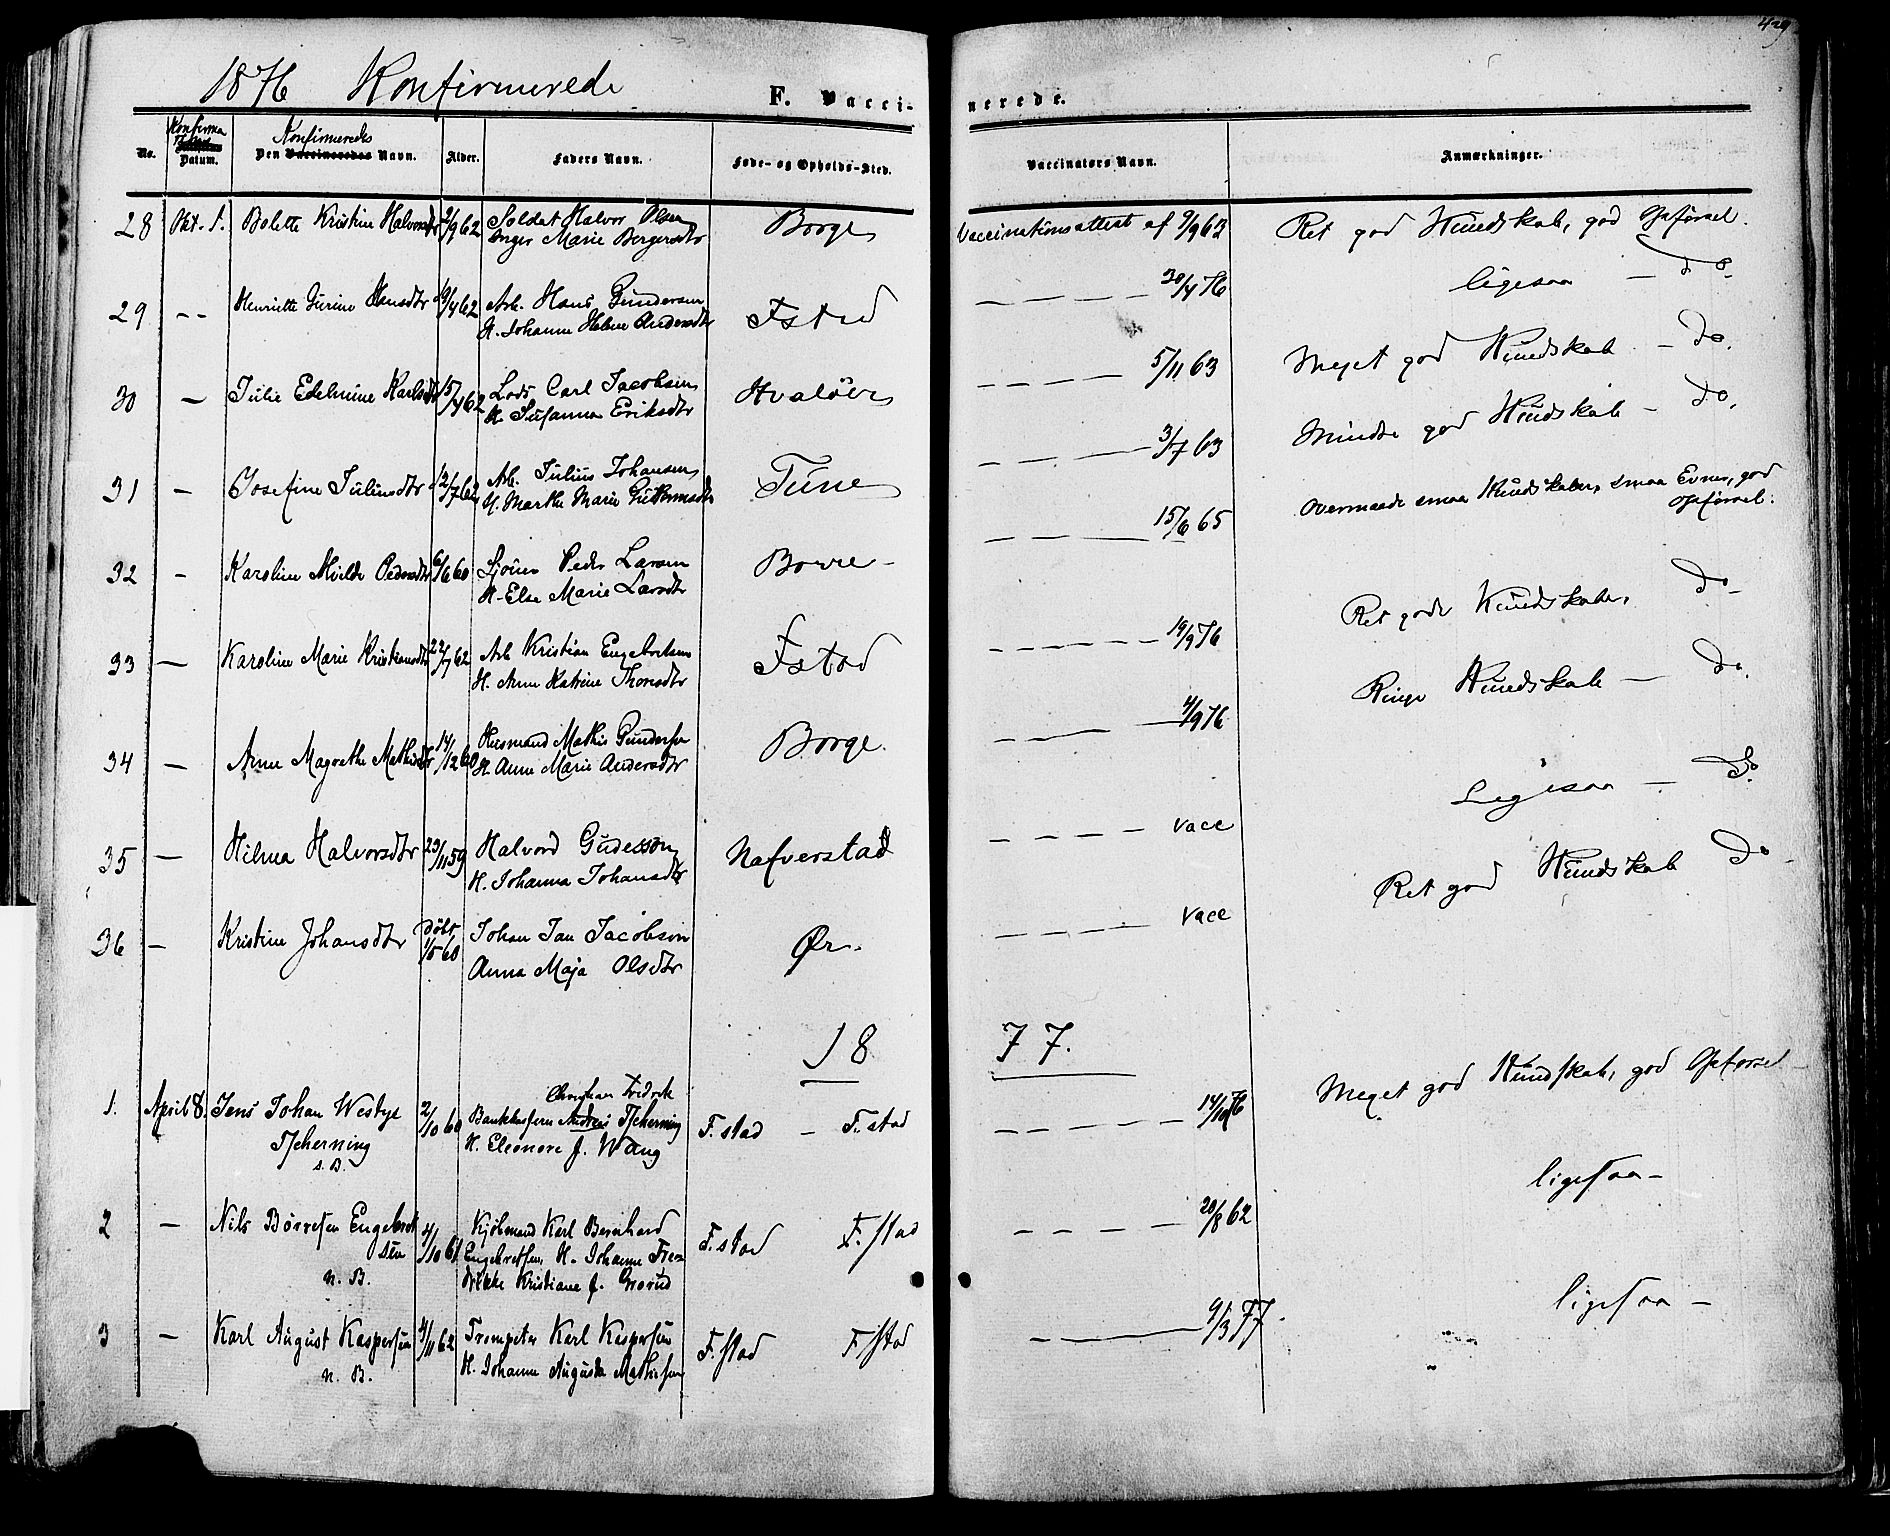 429
1876 Konfirmerede
F. Vacci-
nerede.
No.
Konfirma
Datum.
Konfirmeredes
Den Vaccineredes Navn.
Alder.
Faders Navn.
Føde- og Opholds-Sted.
Vaccinators Navn.
Anmærkninger.
28 Okt. 1. Bolette Kristine Halvorsdtr 2/9 62 Soldat Halvor Olsen Borge Vaccinationsattest af 9/9 63 Ret god Kundskab, god Opførsel.
Inger Marie Bergersdtr
29 -- Henriette Hansdtr 9/4 62 Arb. Hans Gundersen Fstad — — — 30/4 76 ligesaa — do.
H. Johanne Helene Andersdtr
30 — Julie Edelmine Karlsdtr 15/4 62 Lods Carl Jacobsen Hvaløer — — — 5/11 63 Meget god Kundskab — do.
H. Susanna Eriksdtr
31 — Josefine Juliusdtr 12/7 62 Arb. Julius Johansen Tune — — — 3/7 63 Mindre god Kundskab — do.
H. Marthe Marie Guttormsdtr
32 — Karoline Milde Pedersdtr 6/6 60 Sjøm. Peder Larsen Borre — — — 15/6 65 Overmaade smaa Kundskaber, smaa Evner, god
Opførsel.
H. Else Marie Larsdtr
33 — Karoline Marie Kristiansdtr 22/7 62 Arb Kristian Engebretsen Fstad — — — 19/9 76 Ret gode Kundskaber, do
H. Anne Katrine Thorsdtr
34 — Anne Magrethe Mathisdtr 14/12 60 Husmand Mathis Gundersen Borge. — — — 4/9 76 Ringe Kundskab — do.
H. Anne Marie Andersdtr
35 — Hilma Halvorsdtr 23/11 59 Halvord Gudesson Nafverstad — — — vacc Ligesaa — do.
H. Johanna Johansdtr
36 — Kristine Johansdtr Døbt 1/5 60 Johan Jan Jacobson Ør. — — — vacc Ret god Kundskab do
Anna Maja Olsdtr
18 77.
1. April 8. Jens Johan Westye 2/10 60 Christian Fredrik
Bankkasserer Andreas Tscherning F.stad — F.stad — — — 14/10 76 Meget god Kundskab, god Opførsel
Tscherning H. Eleonore f. Wang
s. B.
2 — Nils Børresen Engebret 4/10 61 Kjøbmand Karl Bernhard F.stad F.stad — — — 20/8 62 ligesaa —
sen Engebretsen, H. Johanne Fre=
n. B. drikke Kristiane f. Gnorud
3 — Karl August Kaspersen 4/11 62 Trompeter Karl Kaspersen F.stad F.stad — — 9/3 77. ligesaa —
n. B. H. Johanne Auguste Mathisen